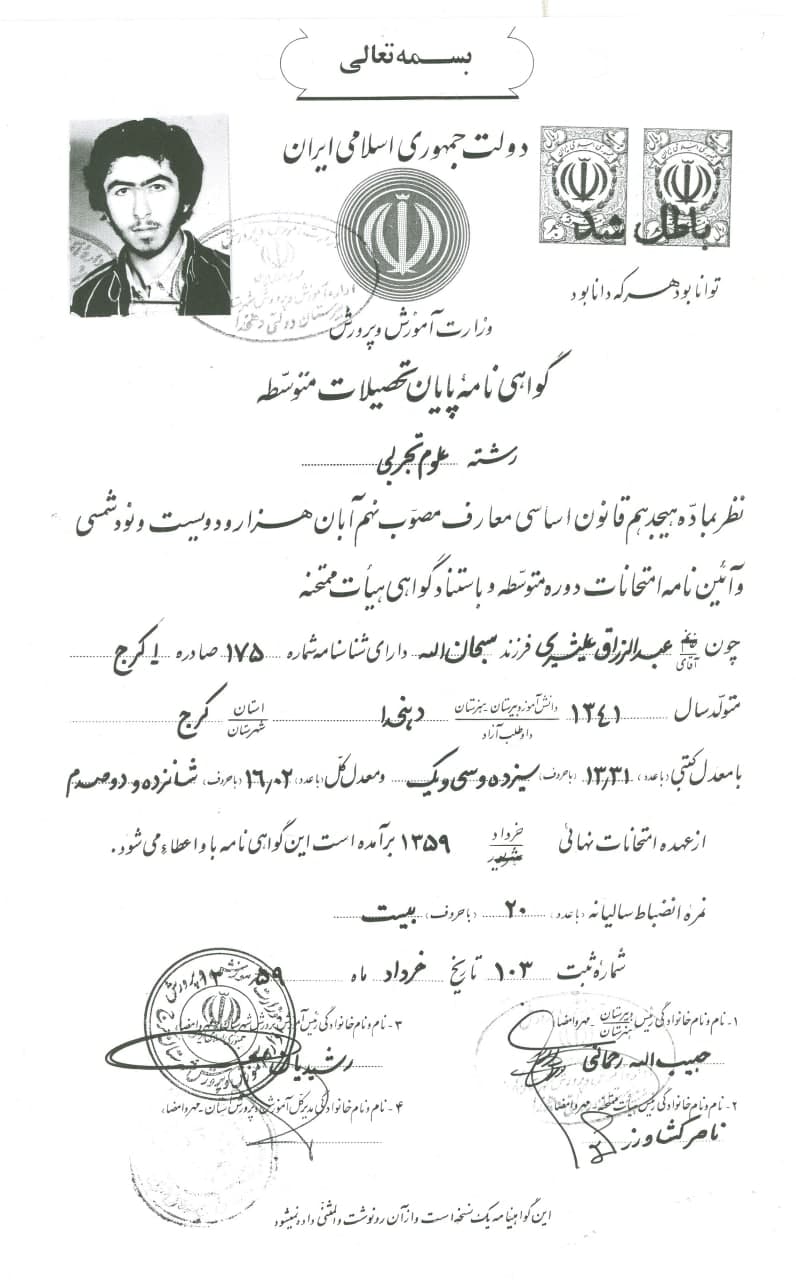 بسمه تعالی
دولت جمهوری اسلامی ایران
باطل شد
توانا بود هر که دانا بود
وزارت آموزش و پرورش
گواهی نامهٔ پایان تحصیلات متوسّطه
رشته علوم تجربی
نظر بمادّه هیجدهم قانون اساسی معارف مصوّب نهم آبان هزار و دویست و نود شمسی
و آئین نامه امتحانات دوره متوسّطه و باستناد گواهی هیأت ممتحنه
چون آقای عبدالرزاق علیشیری فرزند سبحان الله دارای شناسنامه شماره ۱۷۵ صادره ۱ کرج
متولّد سال ۱۳۴۱ دانش آموز دبیرستان - هنرستان داوطلب آزاد دهخدا استان شهرستان کرج
با معدل کتبی (با عدد) ۱۳/۳۱ (با حروف) سیزده و سی و یک و معدل کلّ (با عدد) ۱۶/۰۲ (با حروف) شانزده و دو صدم
از عهده امتحانات نهائی خرداد شهریور ۱۳۵۹ برآمده است این گواهی نامه باو اعطاء می شود.
نمرهٔ انضباط سالیانه (با عدد) ۲۰ (با حروف) بیست
شمارهٔ ثبت ۱۰۳ تاریخ خرداد ماه ۱۳۵۹
۱- نام و نام خانوادگی رئیس دبیرستان هنرستان - مهر و امضاء
حبیب الله رحمانی
۲- نام و نام خانوادگی رئیس هیأت ممتحنه - مهر و امضاء
ناصر کشاورز
۳- نام و نام خانوادگی رئیس آموزش و پرورش شهرستان - مهر و امضاء
رشیدیان
۴- نام و نام خانوادگی مدیر کل آموزش و پرورش استان - مهر و امضاء
این گواهینامه یک نسخه است و از آن رونوشت و المثنی داده نمیشود